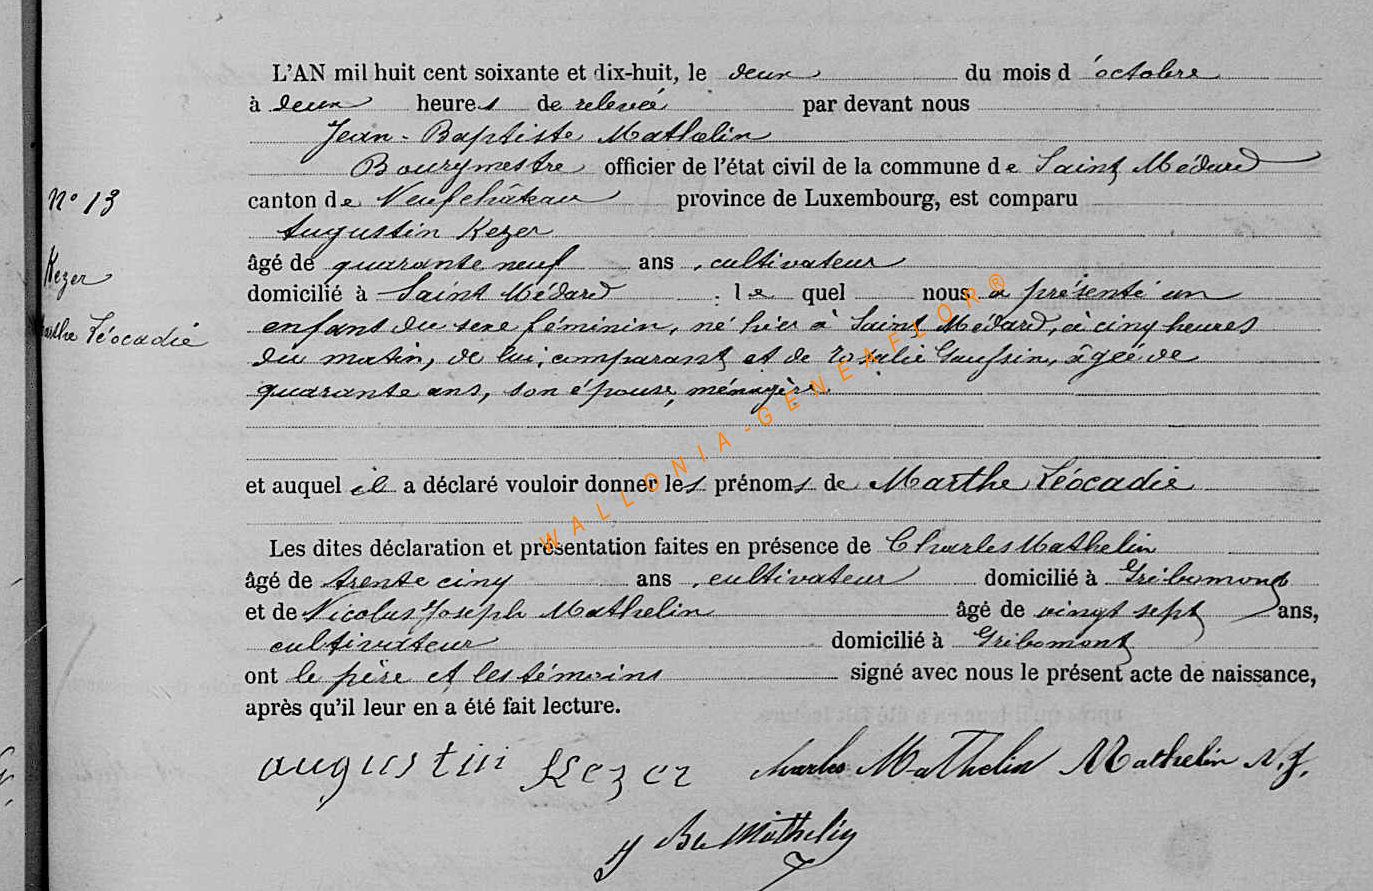 L'AN mil huit cent soixante et dix-huit, le deux du mois d'octobre
à deux heures de relevée par devant nous
Jean-Baptiste Mathelin
Bourgmestre officier de l'état civil de la commune de Saint Médard
N° 13
canton de Neufchâteau province de Luxembourg, est comparu
Augustin Kezer
Kezer
âgé de quarante neuf ans, cultivateur
domicilié à Saint Médard : le quel nous a présenté un
Marthe Léocadie
enfant du sexe féminin, né hier à Saint Médard, à cinq heures
du matin, de lui, comparant et de Rosalie Goussin, âgée de
quarante ans, son épouse, ménagère.
et auquel il a déclaré vouloir donner les prénoms de Marthe Léocadie
Les dites déclaration et présentation faites en présence de Charles Mathelin
âgé de trente cinq ans, cultivateur domicilié à Gribomont
et de Nicolas Joseph Mathelin âgé de vingt sept ans,
cultivateur domicilié à Gribomont
ont le père et les témoins signé avec nous le présent acte de naissance,
après qu'il leur en a été fait lecture.
augustin Kezer Charles Mathelin Mathelin N. J.
J Bte Mathelin
WALLONIA-GENEAFLOR®